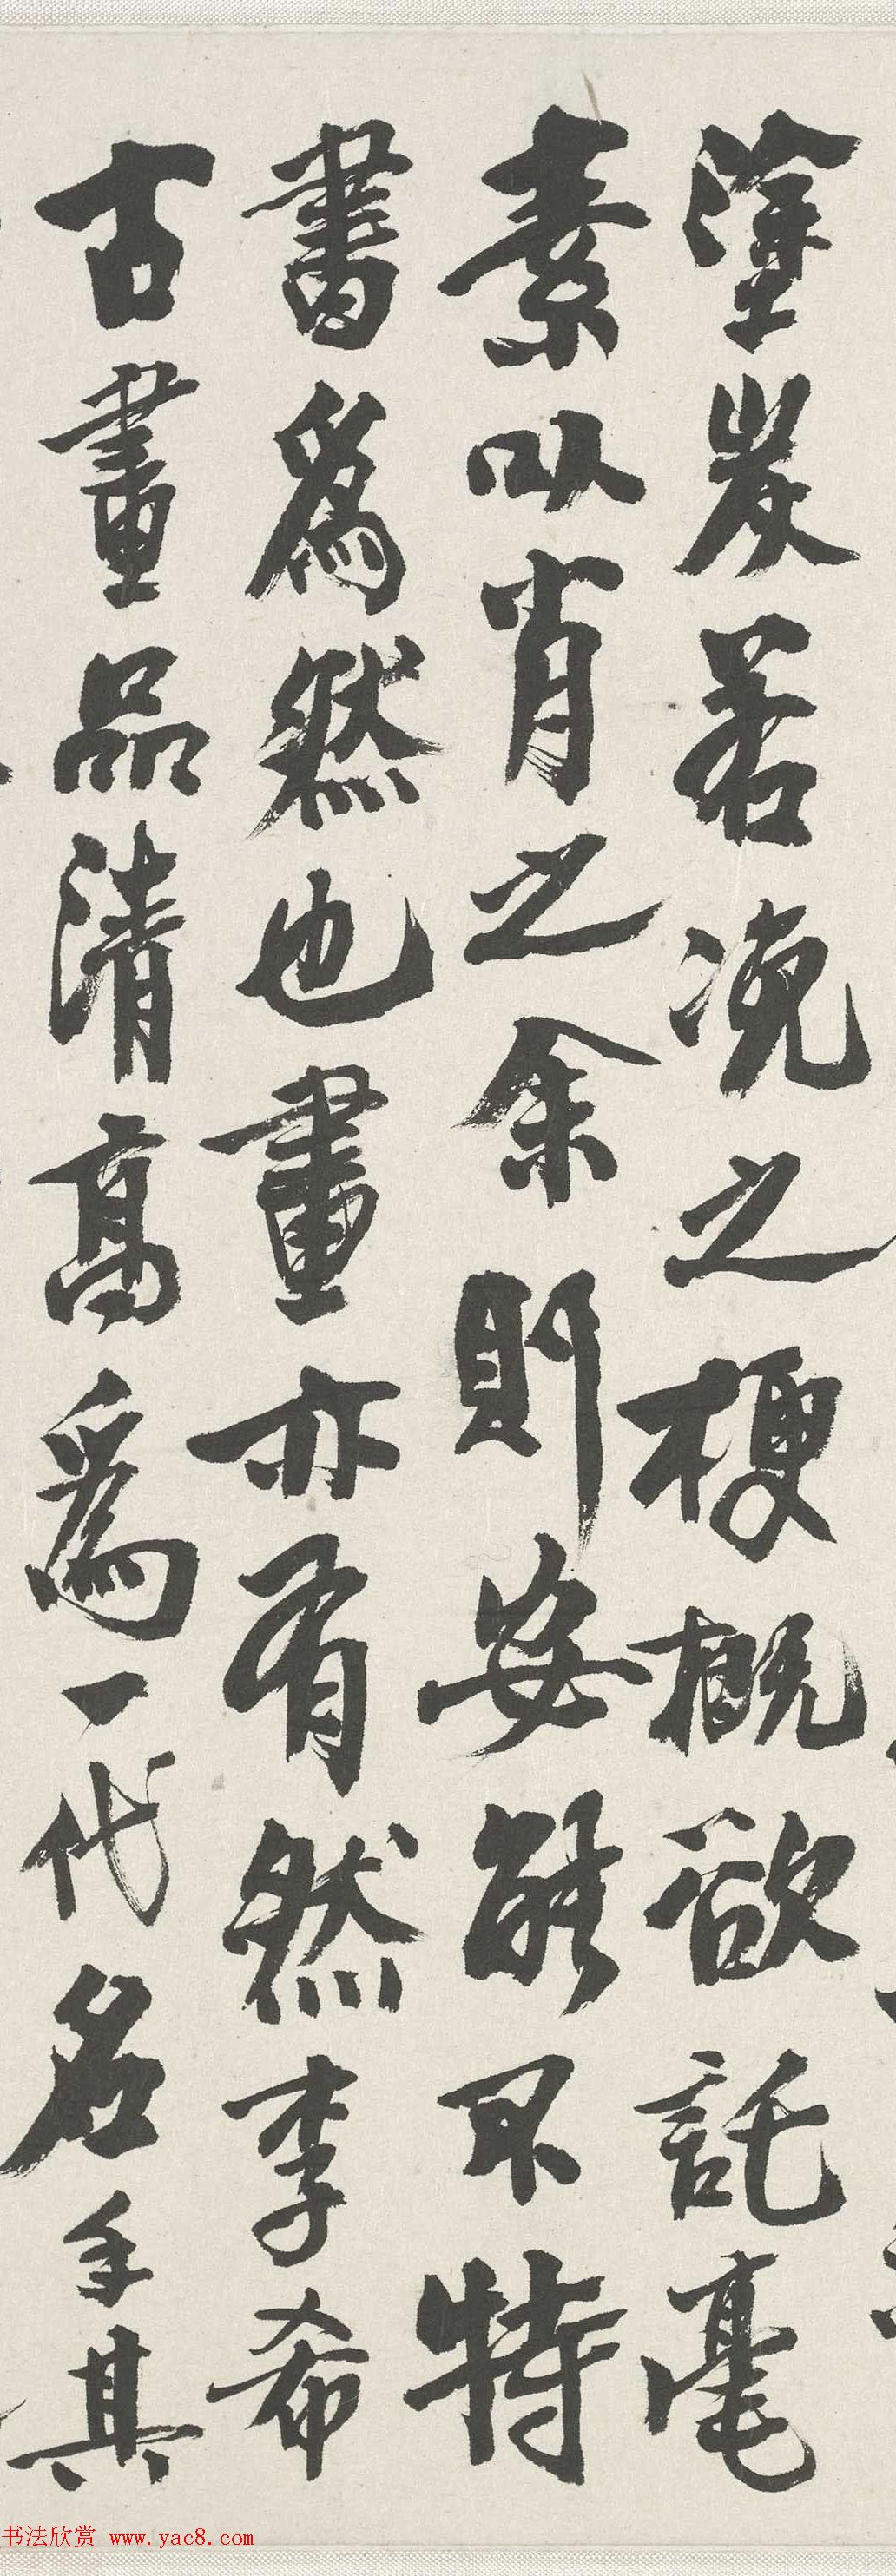 塗炭若凂之梗概欲託毫
素以肖之余則安能不特
書為然也畫亦有然李希
古畫品清高為一代名手其
书法欣赏 www.yac8.com